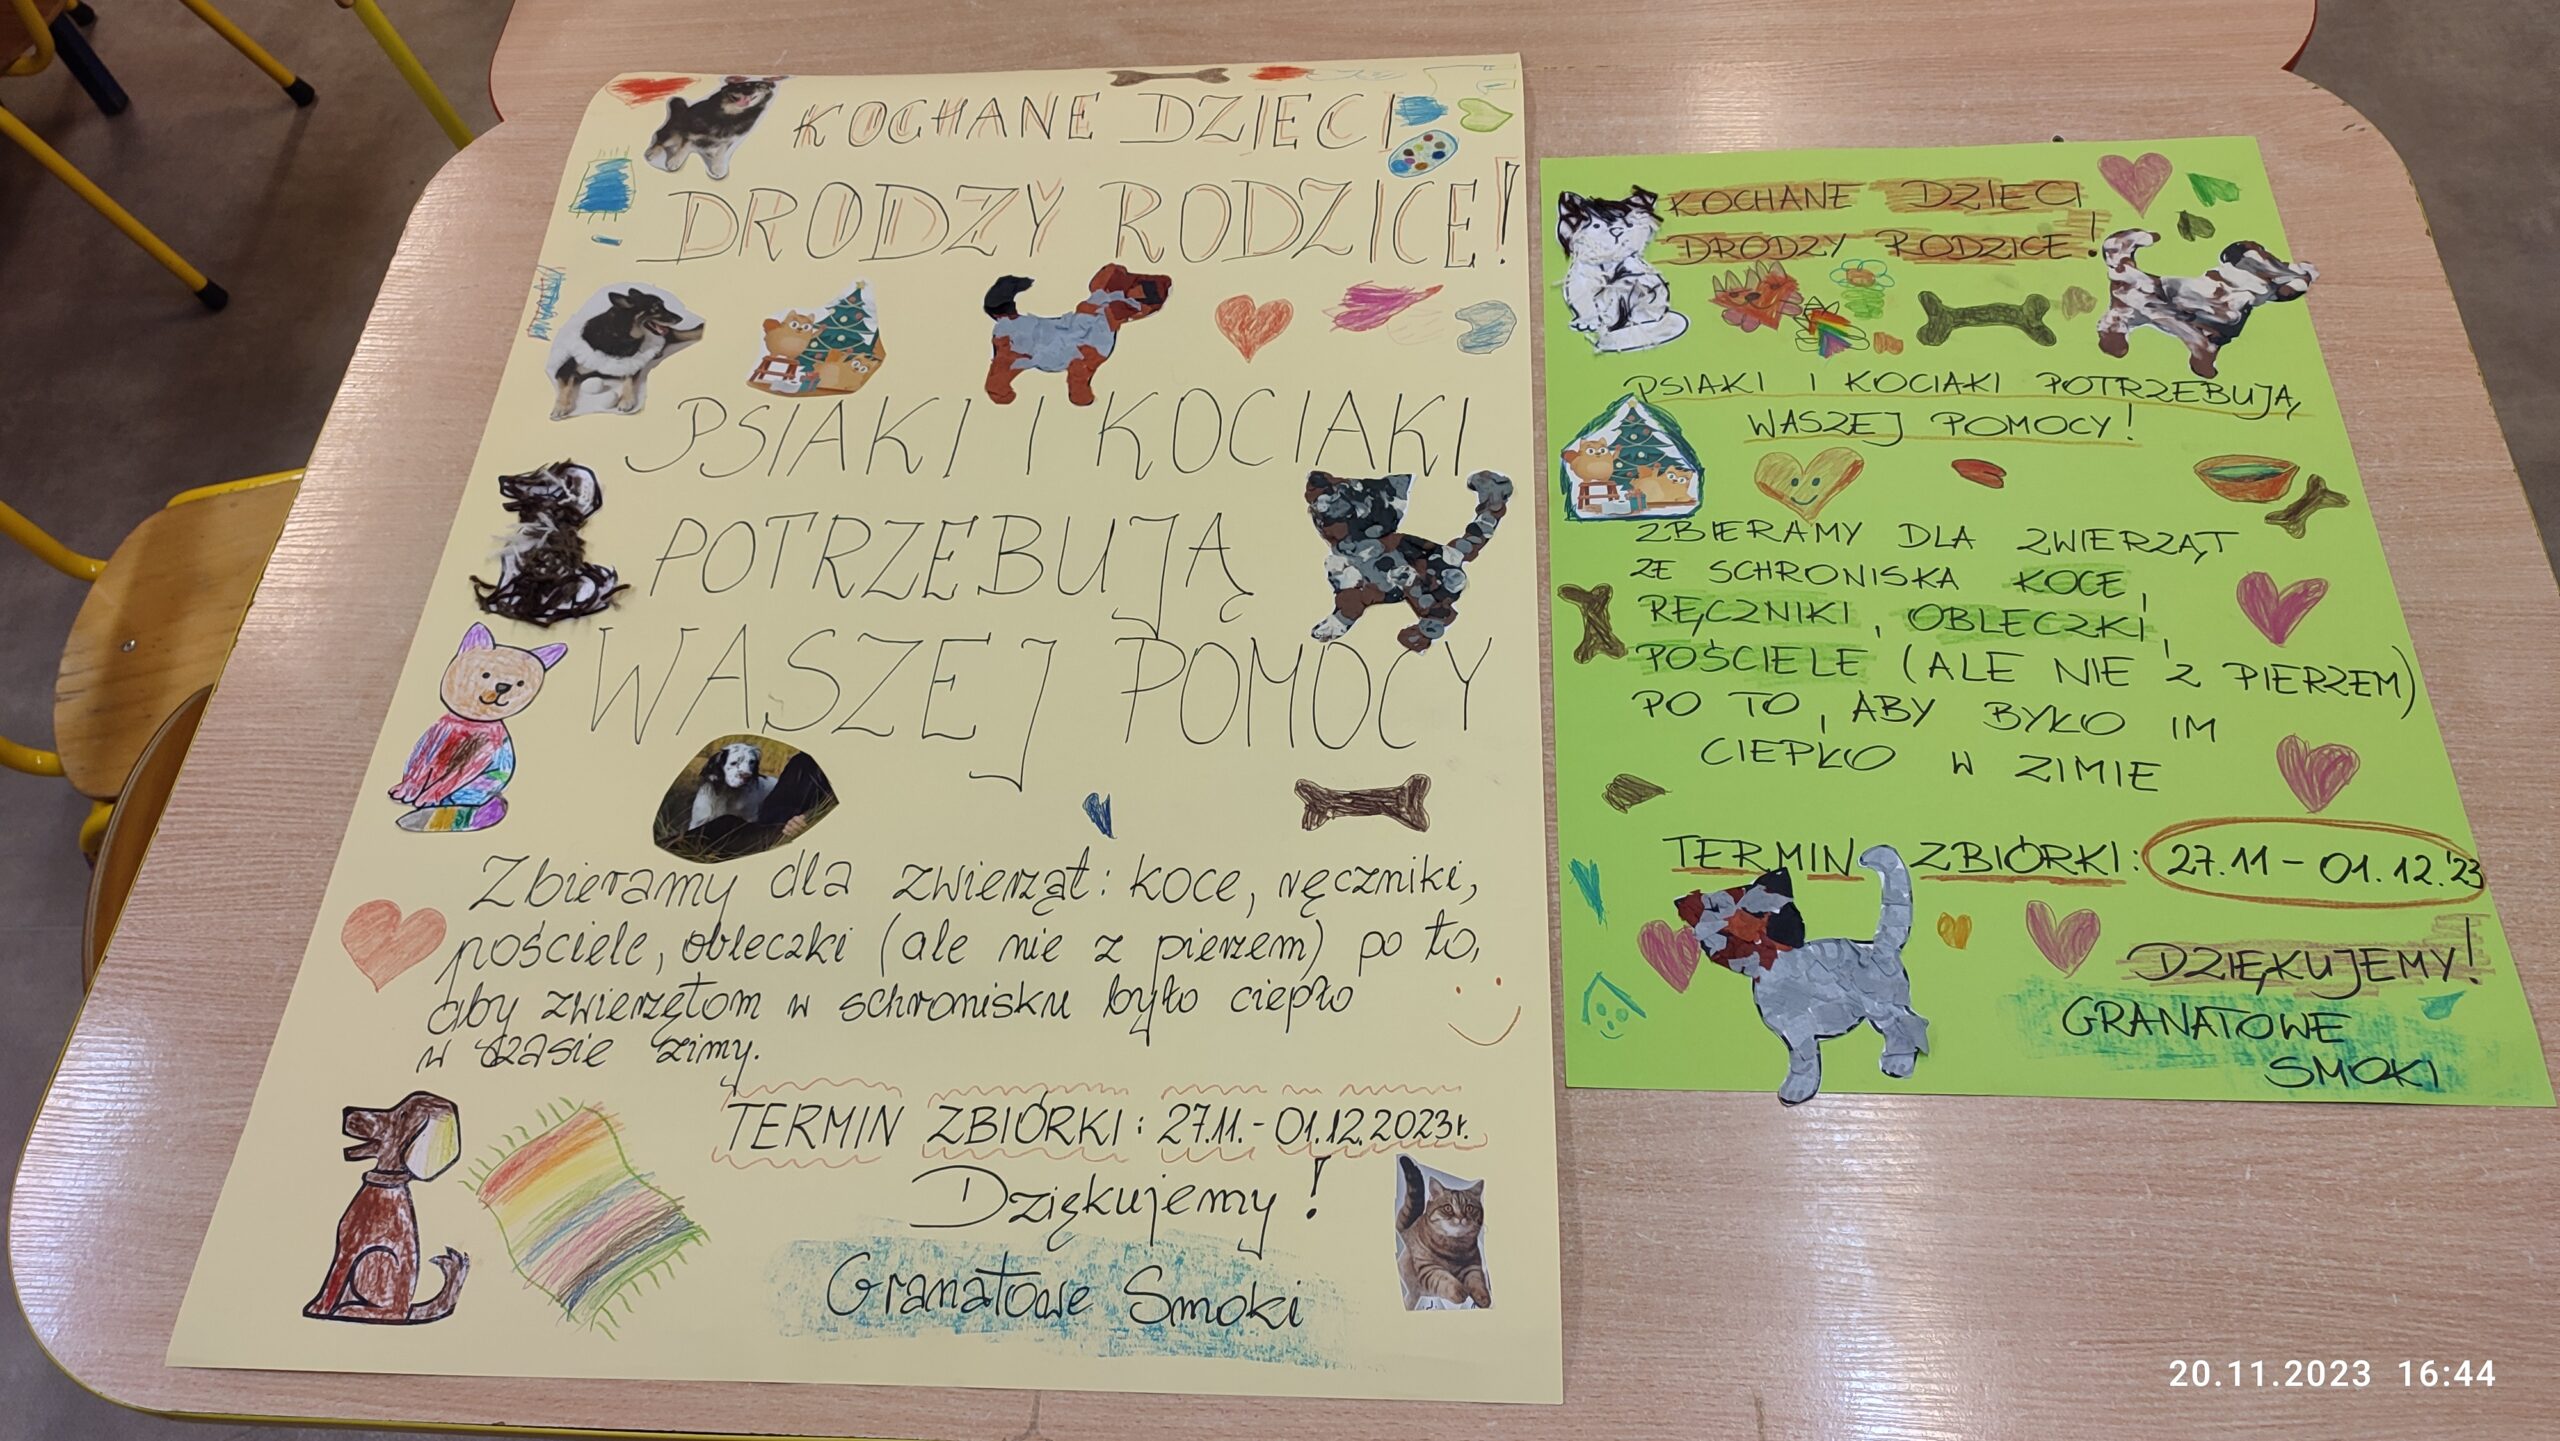 KOCHANE DZIECI
DRODZY RODZICE!
PSIAKI I KOCIAKI
POTRZEBUJĄ
WASZEJ POMOCY
Zbieramy dla zwierząt: koce, ręczniki,
pościele, obleczki (ale nie z pierzem) po to,
aby zwierzętom w schronisku było ciepło
w czasie zimy.
TERMIN ZBIÓRKI: 27.11.-01.12.2023r.
Dziękujemy!
Granatowe Smoki
KOCHANE DZIECI
DRODZY RODZICE!
PSIAKI I KOCIAKI POTRZEBUJĄ
WASZEJ POMOCY!
ZBIERAMY DLA ZWIERZĄT
ZE SCHRONISKA KOCE,
RĘCZNIKI, OBLECZKI,
POŚCIELE (ALE NIE Z PIERZEM)
PO TO, ABY BYŁO IM
CIEPŁO W ZIMIE
TERMIN ZBIÓRKI: 27.11-01.12.'23
DZIĘKUJEMY!
GRANATOWE
SMOKI
20.11.2023 16:44